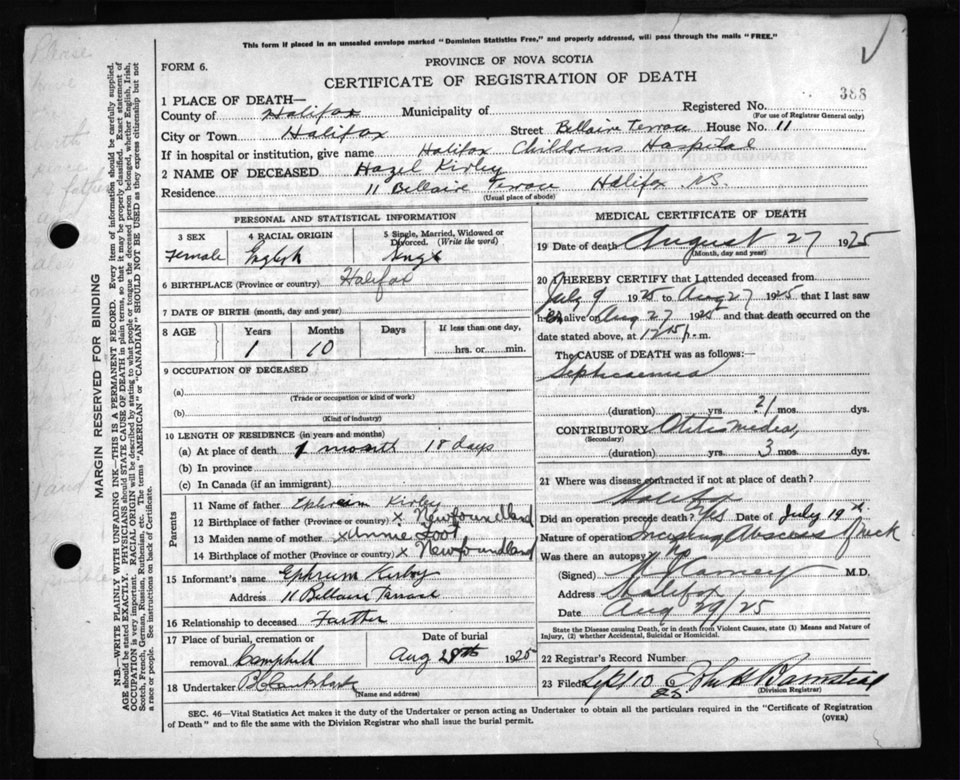 This form if placed in an unsealed envelope marked "Dominion Statistics Free," and properly addressed, will pass through the mails "FREE."
FORM 6.
PROVINCE OF NOVA SCOTIA
CERTIFICATE OF REGISTRATION OF DEATH
388
1 PLACE OF DEATH—
County of Halifax Municipality of Registered No.
(For use of Registrar General only)
City or Town Halifax Street Bellaire Terrace House No. 11
If in hospital or institution, give name Halifax Childrens Hospital
2 NAME OF DECEASED Hazel Kirley
Residence 11 Bellaire Terrace Halifax N.S.
(Usual place of abode)
PERSONAL AND STATISTICAL INFORMATION
3 SEX 4 RACIAL ORIGIN 5 Single, Married, Widowed or Divorced. (Write the word)
Female English Single
6 BIRTHPLACE (Province or country) Halifax
7 DATE OF BIRTH (month, day and year)
8 AGE Years Months Days If less than one day,
1 10 hrs. or min.
9 OCCUPATION OF DECEASED
(a)
(Trade or occupation or kind of work)
(b)
(Kind of industry)
10 LENGTH OF RESIDENCE (in years and months)
(a) At place of death 1 month 18 days
(b) In province
(c) In Canada (if an immigrant)
Parents
11 Name of father Ephraim Kirley
12 Birthplace of father (Province or country) x Newfoundland
13 Maiden name of mother x Annie Foot
14 Birthplace of mother (Province or country) x Newfoundland
15 Informant's name Ephrum Kirby
Address 11 Bellaire Terrace
16 Relationship to deceased Farther
17 Place of burial, cremation or removal Date of burial
Camphill Aug 29th 1925
18 Undertaker
(Name and address)
MEDICAL CERTIFICATE OF DEATH
19 Date of death August 27 1925
(Month, day and year)
20 I HEREBY CERTIFY that I attended deceased from
July 9 1925 to Aug 27 1925 that I last saw
her alive on Aug 27 1925 and that death occurred on
date stated above, at 12 15 p. m.
The CAUSE of DEATH was as follows:—
Septicaemia
(duration) yrs. 2 mos. dys.
CONTRIBUTORY Otitis media,
(Secondary)
(duration) yrs. 3 mos. dys.
21 Where was disease contracted if not at place of death?
Halifax
Did an operation precede death? Yes Date of July 19
Nature of operation Incising Abscess Neck
Was there an autopsy? No
(Signed) M.D.
Address Halifax
Date Aug 29/25
State the Disease causing Death, or in death from Violent Causes, state (1) Means and Nature of Injury, (2) whether Accidental, Suicidal or Homicidal.
22 Registrar's Record Number
23 Filed Sept 10 25 John H Barnstead
(Division Registrar)
SEC. 46—Vital Statistics Act makes it the duty of the Undertaker or person acting as Undertaker to obtain all the particulars required in the "Certificate of Registration
of Death" and to file the same with the Division Registrar who shall issue the burial permit.
(OVER)
MARGIN RESERVED FOR BINDING
N.B.—WRITE PLAINLY WITH UNFADING INK—THIS IS A PERMANENT RECORD. Every item of information should be carefully supplied.
AGE should be stated EXACTLY. PHYSICIANS should STATE CAUSE OF DEATH in plain terms, so that it may be properly classified. Exact statement of
OCCUPATION is very important. RACIAL ORIGIN will be described by stating to what people or tongue the deceased person belonged, whether English, Irish,
Scotch, French, German, Russian, Ruthenian, etc. The terms "AMERICAN" or "CANADIAN" SHOULD NOT BE USED as they express citizenship but not
a race or people. See instructions on back of Certificate.